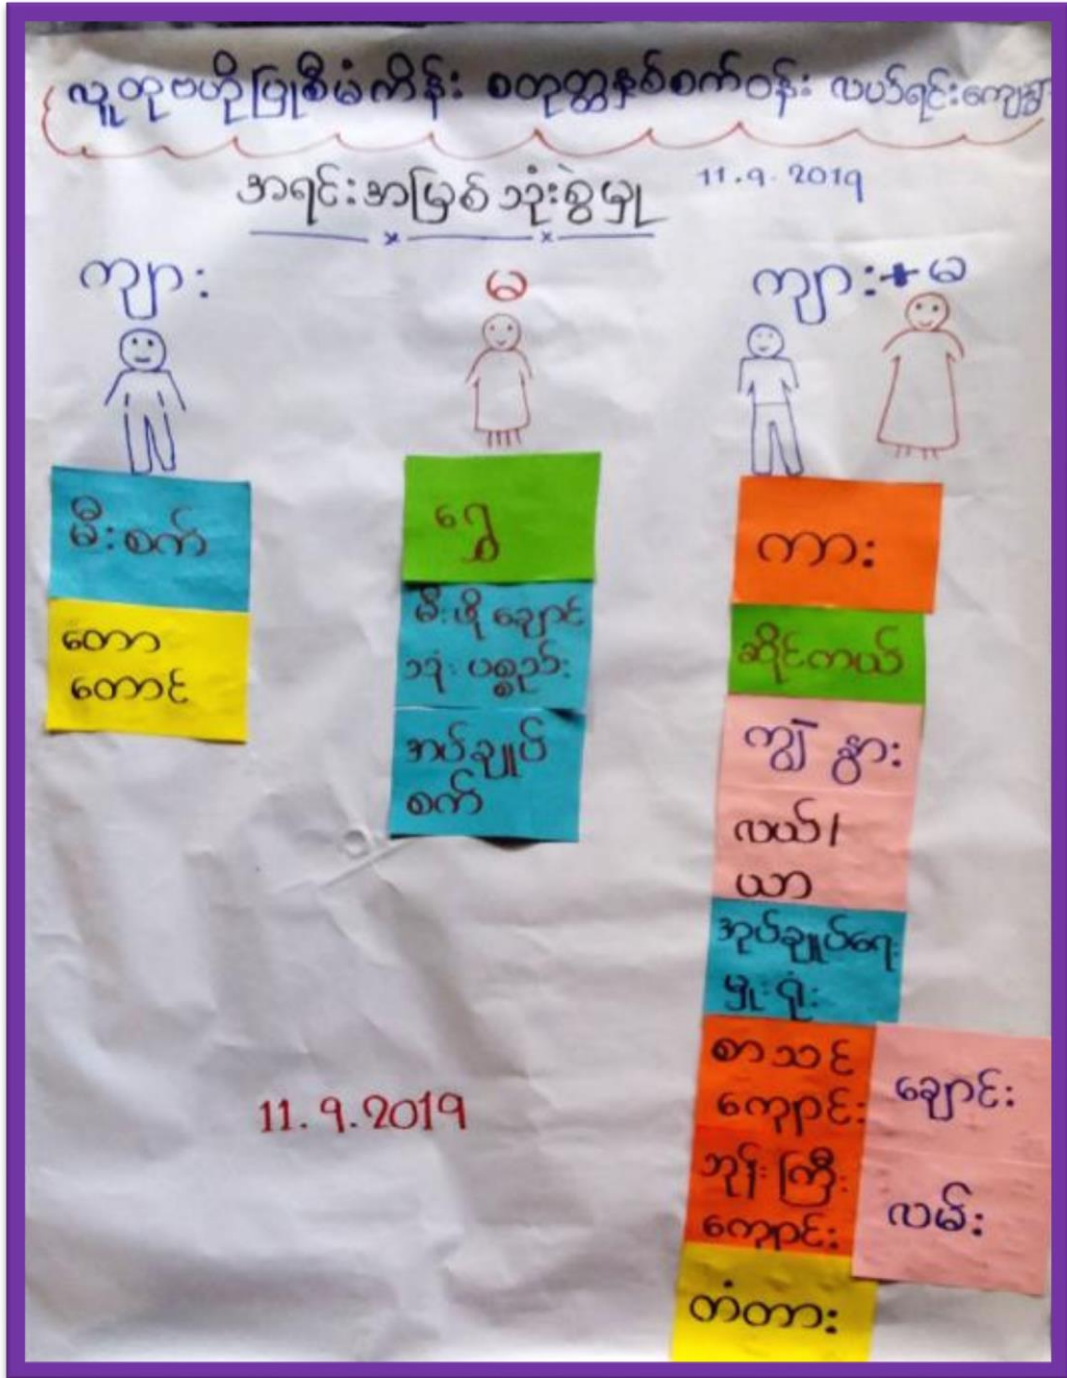 လူထုဗဟိုပြုစီမံကိန်း စတုတ္ထနှစ်စက်ဝန်း လယ်ရင်းကျေးရွာ
အရင်းအမြစ်သုံးစွဲမှု 11.9.2019
ကျား
မ
ကျား+မ
မီးစက်
တော
တောင်
ရွှေ
မီးဖိုချောင်
သုံးပစ္စည်း
အပ်ချုပ်
စက်
ကား
ဆိုင်ကယ်
ကျွဲ နွား
လယ်/
ယာ
အုပ်ချုပ်ရေး
မှူးရုံး
စာသင်
ကျောင်း
ဘုန်းကြီး
ကျောင်း
ချောင်း
လမ်း
ကံတား
11.9.2019